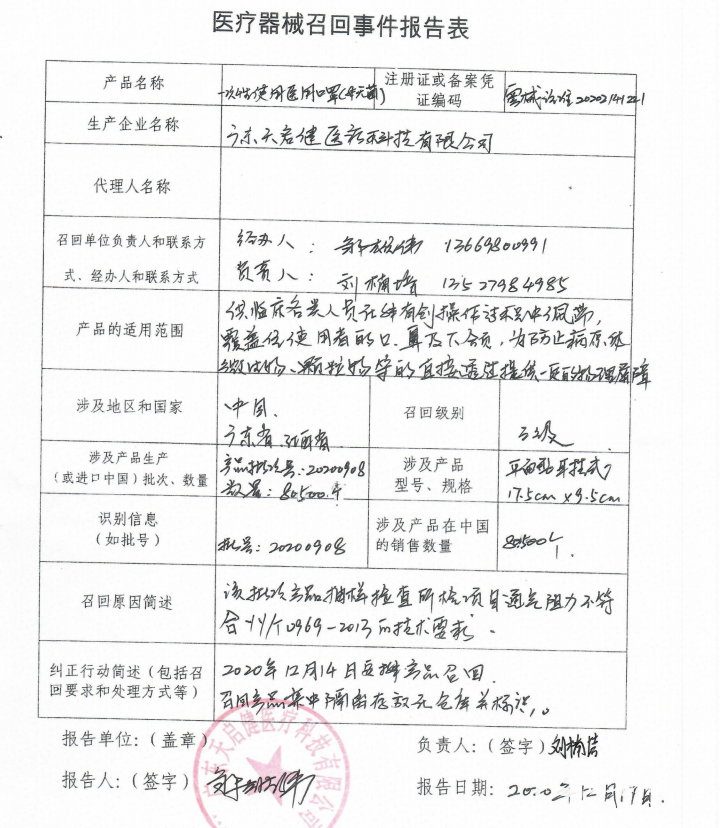 医疗器械召回事件报告表
产品名称
一次性使用医用口罩(非无菌)
注册证或备案凭
证编码
粤械注准20202141221
生产企业名称
广东天启健医疗科技有限公司
代理人名称
召回单位负责人和联系方
式、经办人和联系方式
经办人: 伟 13669800991
负责人: 刘楠 13527984985
产品的适用范围
供临床各类人员在非有创操作过程中佩带,
覆盖住使用者的口、鼻及下颌,为防止病原体
微生物、颗粒物等的直接透过提供一定的物理屏障
涉及地区和国家
中国.
广东省 江西省
召回级别
三级
涉及产品生产
(或进口中国)批次、数量
产品批次号:20200908
数量:80500个
涉及产品
型号、规格
平面型耳挂式
17.5cm×9.5cm
识别信息
(如批号)
批号:20200908
涉及产品在中国
的销售数量
80500个.
召回原因简述
该批次产品抽样检查所检项目通气阻力不符
合YY/T0969-2013的技术要求.
纠正行动简述(包括召
回要求和处理方式等)
2020年12月14日安排产品召回.
召回产品集中隔离存放于仓库并标识。
报告单位:(盖章)
负责人:(签字)刘楠
报告人:(签字)伟
报告日期: 2020年12月19日.
广东天启健医疗科技有限公司